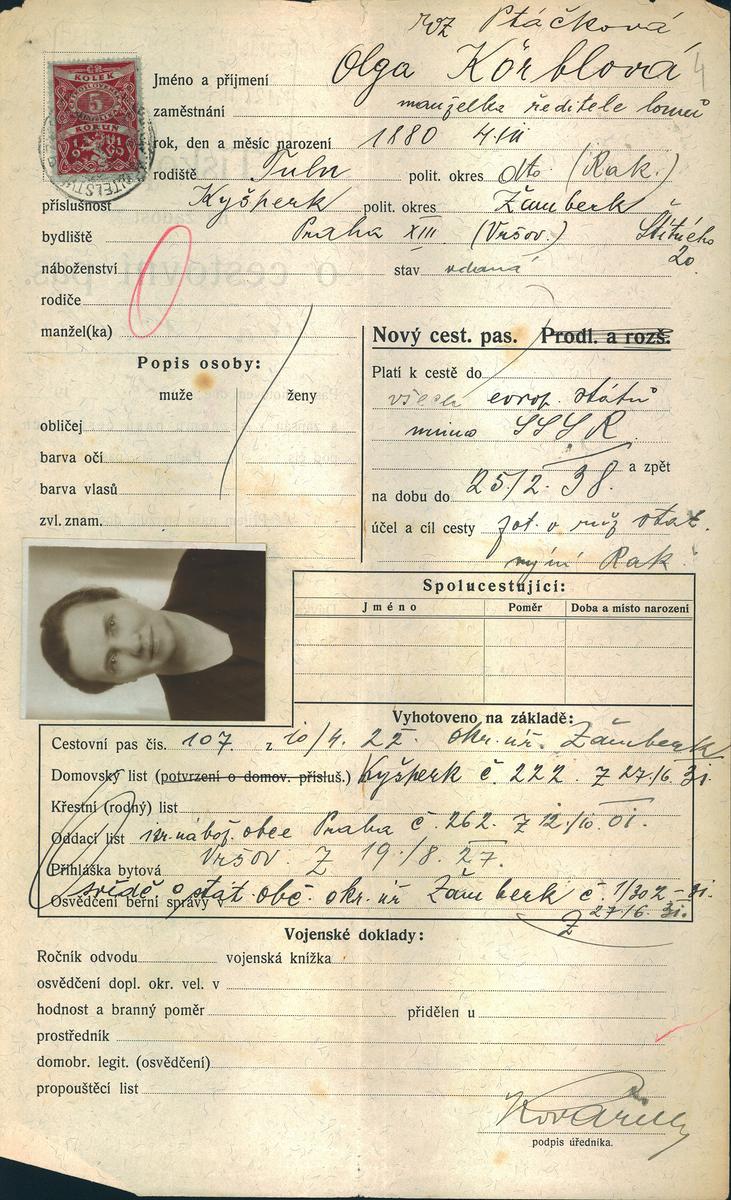 roz Ptáčková
Jméno a příjmení Olga Körblová 4
zaměstnání manželka ředitele lomů
rok, den a měsíc narození 1880 4/III
rodiště Tuln polit. okres dto (Rak.)
příslušnost Kyšperk polit. okres Žamberk
bydliště Praha XIII (Vršov.) Štítného
20.
náboženství stav vdaná
rodiče
manžel(ka)
ČR KOLEK
5
KORUN
Nový cest. pas. Prodl. a rozš.
Popis osoby:
muže ženy
obličej
barva očí
barva vlasů
zvl. znam.
Platí k cestě do
všech evrop. států
mimo SSSR
a zpět
na dobu do 25/2. 38.
účel a cíl cesty pot. v růz stat.
nyní Rak.
Spolucestující:
Jméno Poměr Doba a místo narození
Vyhotoveno na základě:
Cestovní pas čís. 107. z 10/4. 22. okr. úř. Žamberk
Domovský list (potvrzení o domov. přísluš.) Kyšperk č 222. z 27/6. 31.
Křestní (rodný) list
Oddací list isr. nábož. obce Praha č 262. z 12./10. 01.
Přihláška bytová Vršov. z 19./8. 27.
Osvědčení berní správy v
svědč o stát. obč. okr. úř Žamberk č 1/302-31.
z 27/6. 31.
Vojenské doklady:
Ročník odvodu vojenská knížka
osvědčení dopl. okr. vel. v
hodnost a branný poměr přidělen u
prostředník
domobr. legit. (osvědčení)
propouštěcí list
podpis úředníka.